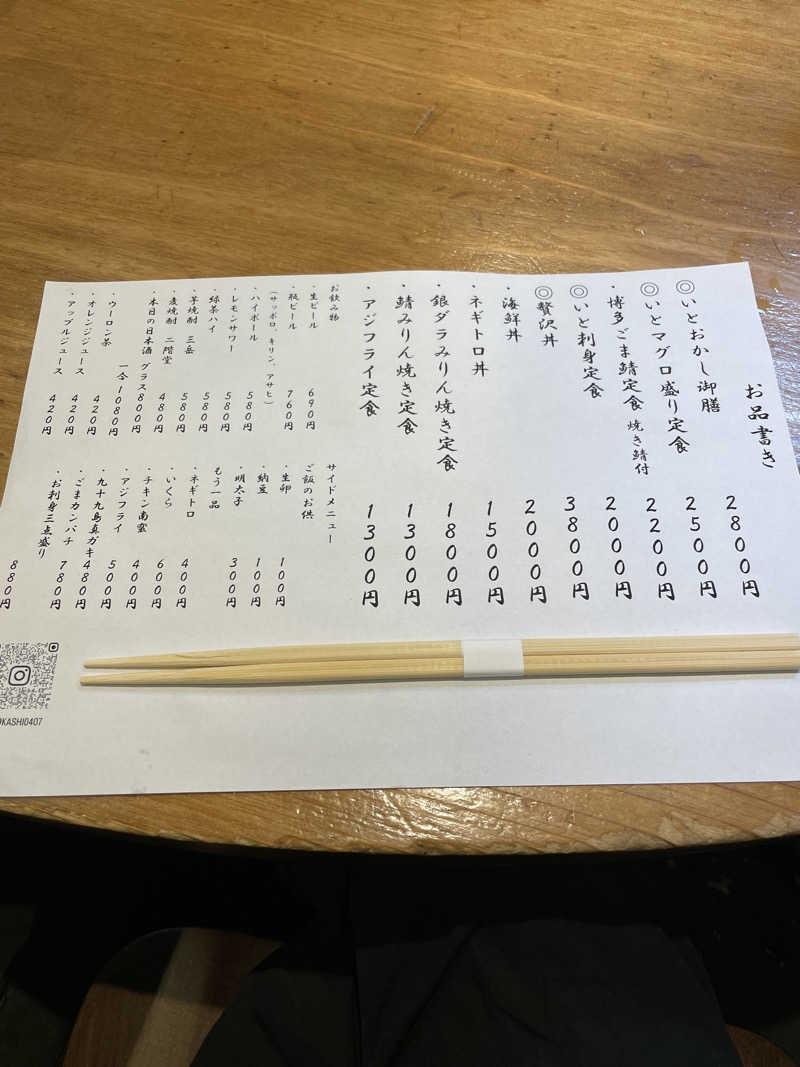 お品書き
◎いとおかし御膳 2800円
◎いとマグロ盛り定食 2500円
・博多ごま鯖定食 焼き鯖付 2200円
◎いと刺身定食 2000円
◎贅沢丼 3800円
・海鮮丼 2000円
・ネギトロ丼 1500円
・銀ダラみりん焼き定食 1800円
・鯖みりん焼き定食 1300円
・アジフライ定食 1300円
お飲み物
・生ビール 690円
・瓶ビール 760円
(サッポロ、キリン、アサヒ)
・ハイボール 580円
・レモンサワー 580円
・緑茶ハイ 580円
・芋焼酎 三岳 580円
・麦焼酎 二階堂 480円
・本日の日本酒 グラス800円
一合1080円
・ウーロン茶 420円
・オレンジジュース 420円
・アップルジュース 420円
サイドメニュー
ご飯のお供
・生卵 100円
・納豆 100円
・明太子 300円
もう一品
・ネギトロ 400円
・いくら 600円
・チキン南蛮 400円
・アジフライ 500円
・九十九島真ガキ 480円
・ごまカンパチ 780円
・お刺身三点盛り 880円
KASHI0407